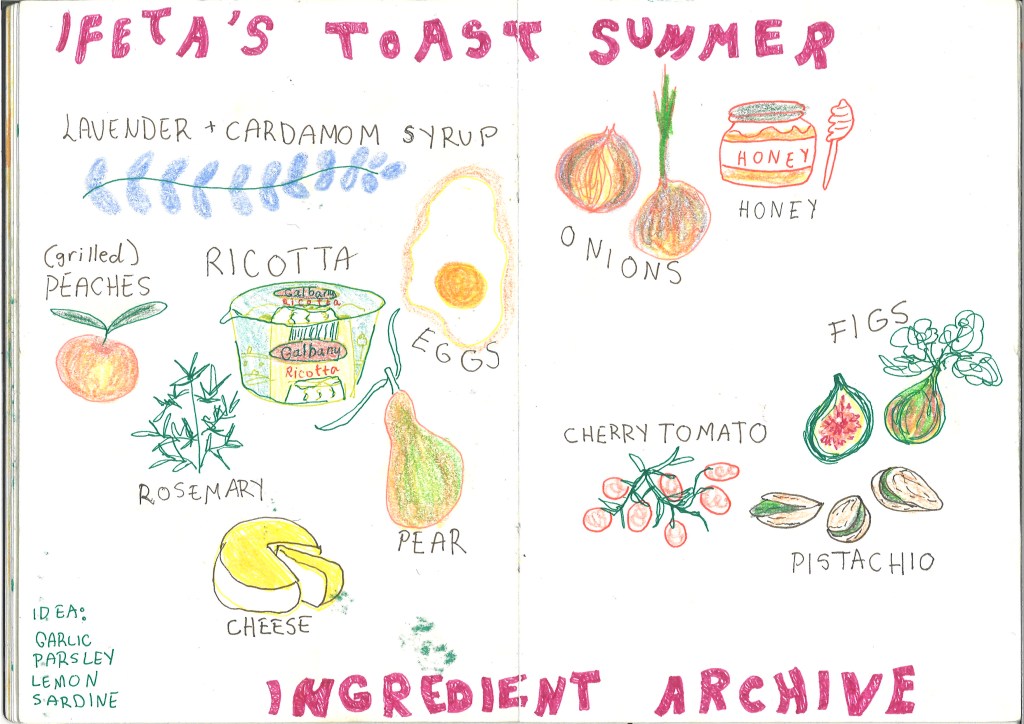 IFETA'S TOAST SUMMER
LAVENDER + CARDAMOM SYRUP
HONEY
HONEY
ONIONS
(grilled)
PEACHES
RICOTTA
Galbany
Ricotta
Galbany
Ricotta
EGGS
FIGS
CHERRY TOMATO
ROSEMARY
PEAR
PISTACHIO
CHEESE
IDEA:
GARLIC
PARSLEY
LEMON
SARDINE
INGREDIENT ARCHIVE